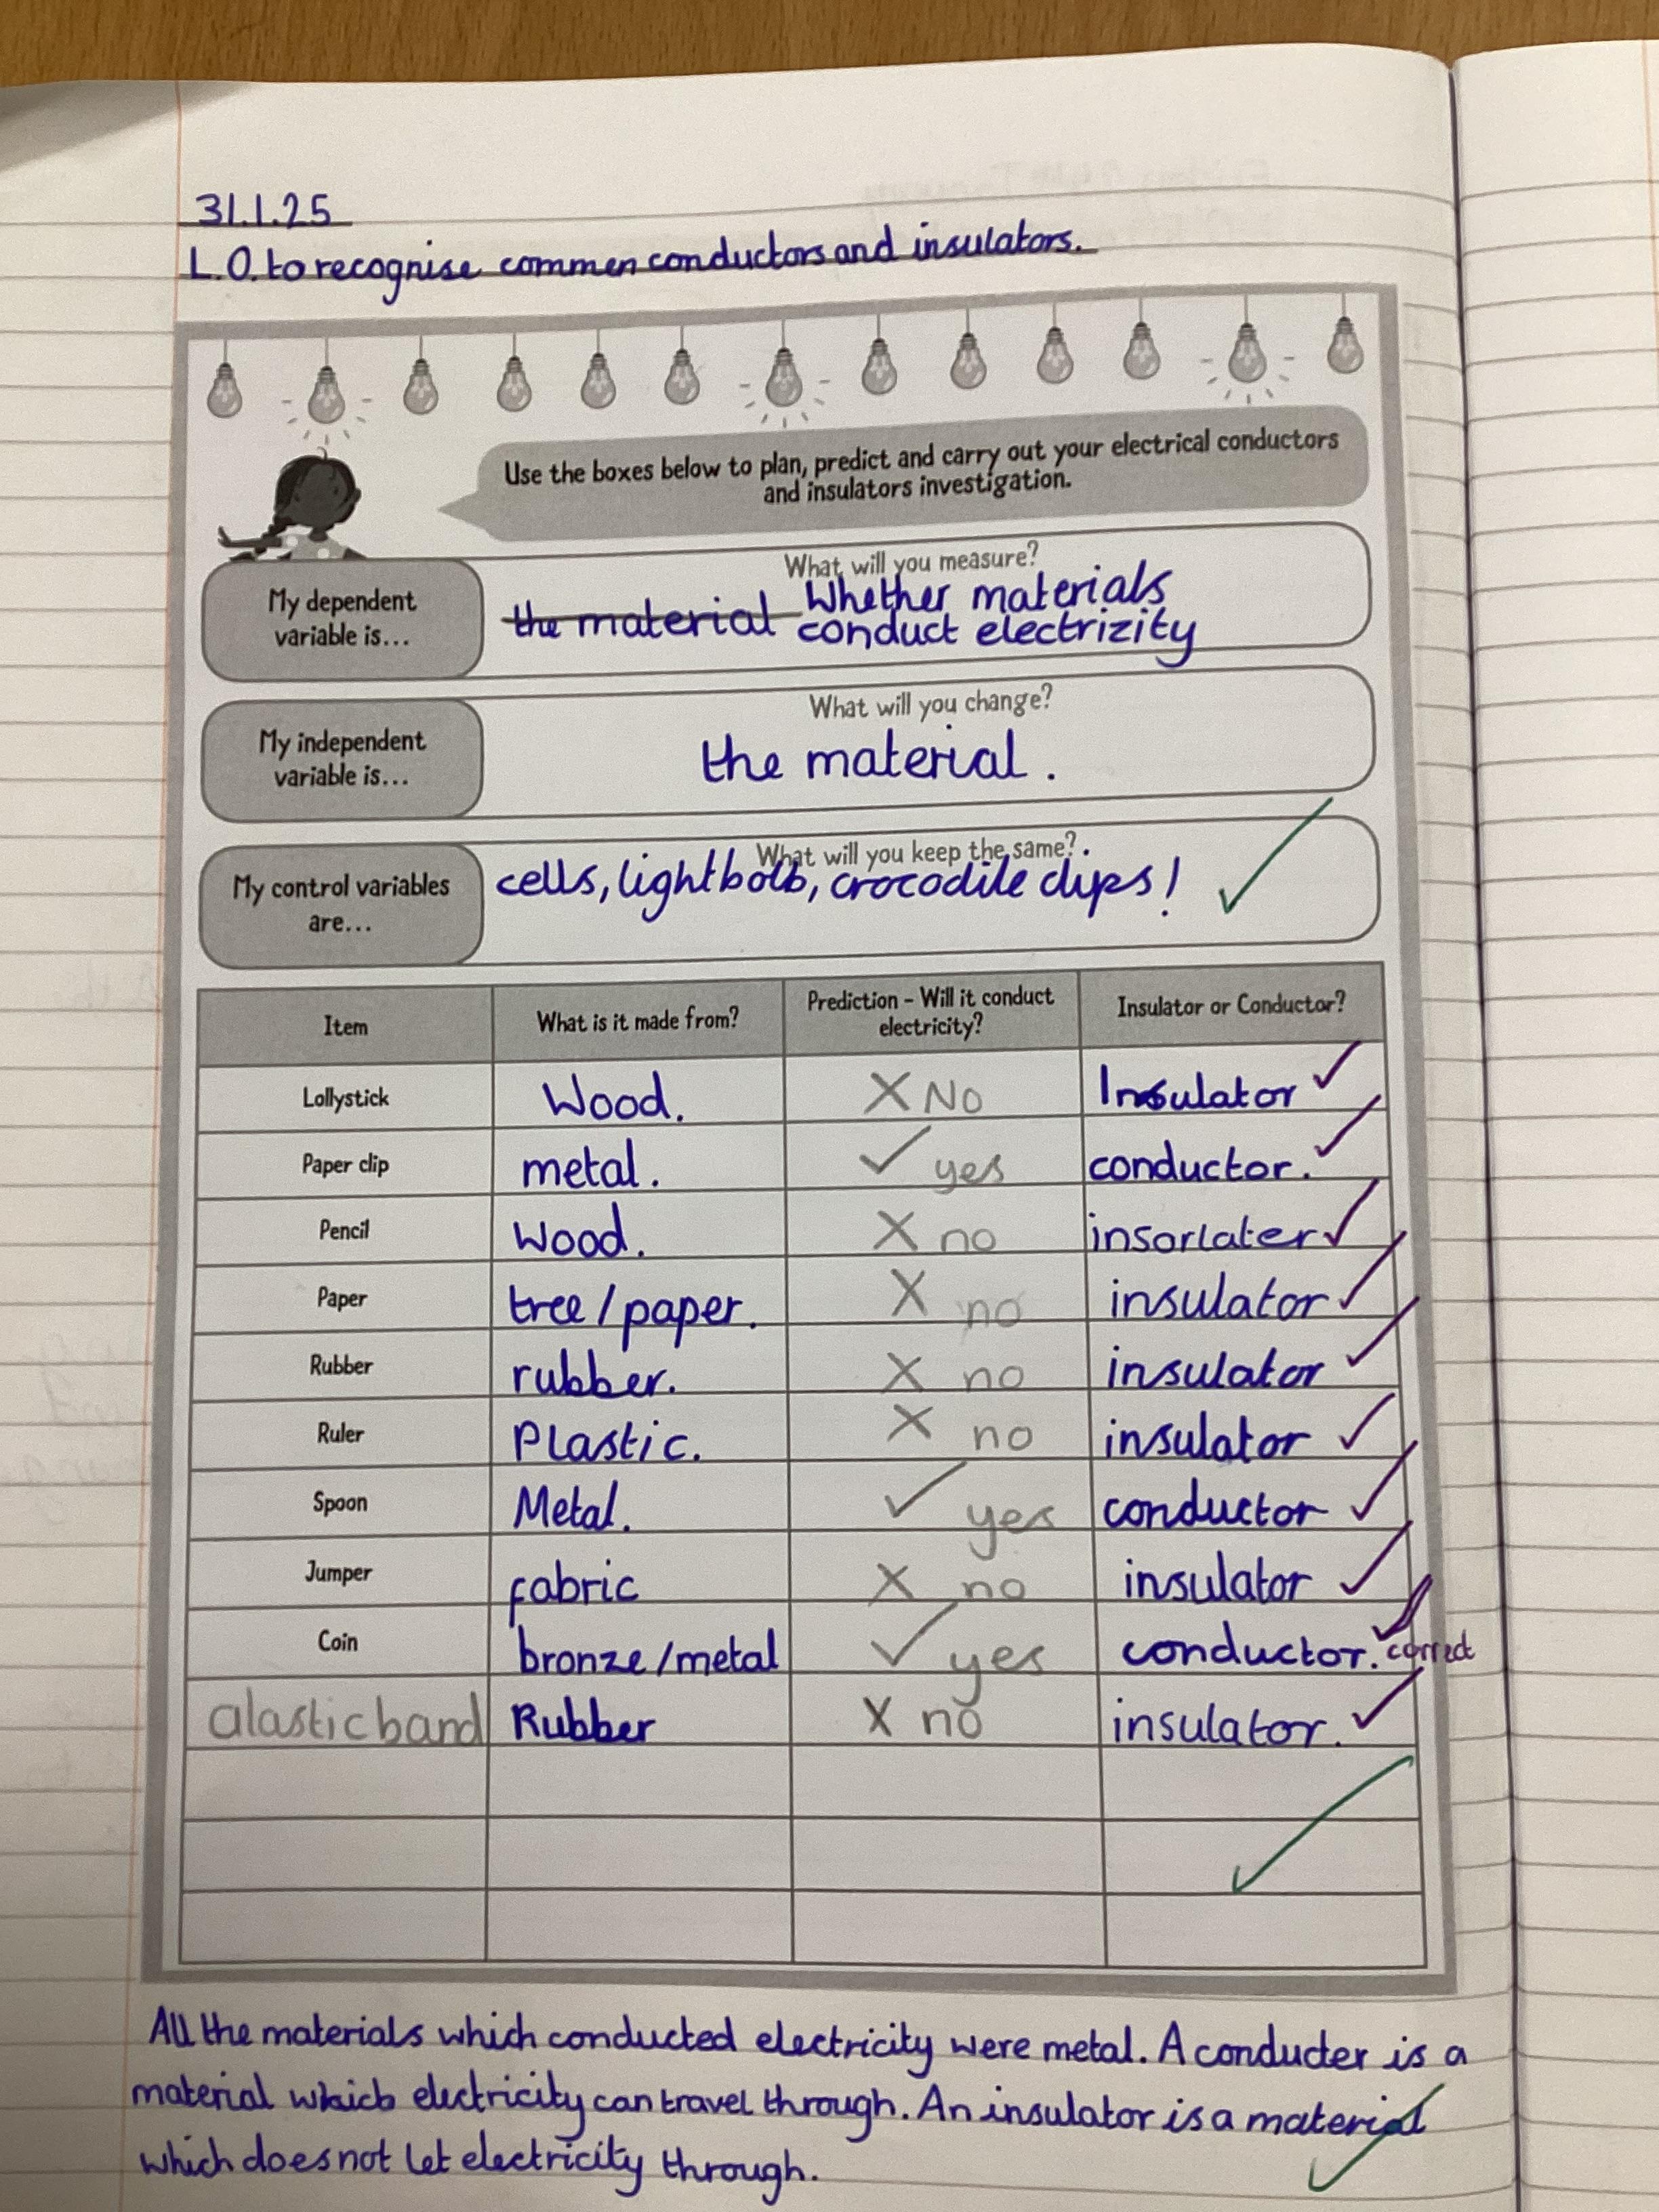 31.1.25
L.O. to recognise commen conductors and insulators.
Use the boxes below to plan, predict and carry out your electrical conductors
and insulators investigation.
My dependent
variable is...
What will you measure?
the material Whether materials
conduct electrizity
My independent
variable is...
What will you change?
the material.
My control variables
are...
What will you keep the same?
cells, lightbolb, crocodile clips!
Item What is it made from? Prediction - Will it conduct electricity? Insulator or Conductor?
Lollystick Wood. X No Insulator ✓
Paper clip metal. ✓ yes conductor. ✓
Pencil Wood. X no insorlater ✓
Paper tree/paper. X no insulator ✓
Rubber rubber. X no insulator ✓
Ruler Plastic. X no insulator ✓
Spoon Metal. ✓ yes conductor ✓
Jumper fabric X no insulator ✓
Coin bronze/metal ✓ yes conductor. ✓ correct
alastic band Rubber X no insulator. ✓
All the materials which conducted electricity were metal. A conducter is a
material which electricity can travel through. An insulator is a material
which does not let electricity through.